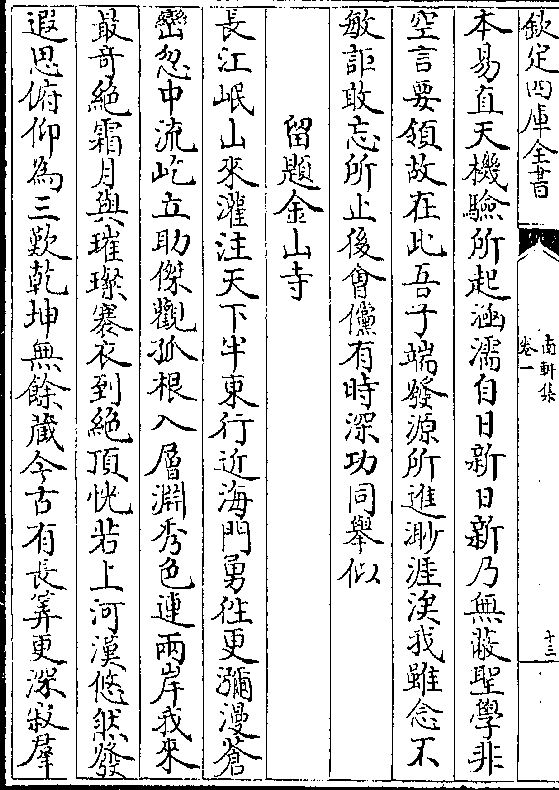 欽定四庫全書
南軒集
卷一
十三
本易直天機驗所起涵濡自日新日新乃無蔽聖學非
空言要領故在此吾子端發源所進渺涯涘我雖念不
敏詎敢忘所止後會儻有時深功同舉似
留題金山寺
長江岷山來灌注天下半東行近海門勇徃更瀰漫蒼
巒忽中流屹立助傑觀孤根入層淵秀色連兩岸我來
最竒絶霜月與璀璨褰衣到絶頂恍若上河漢悠然發
遐思俯仰為三歎乾坤無餘藏今古有長筭更深寂羣